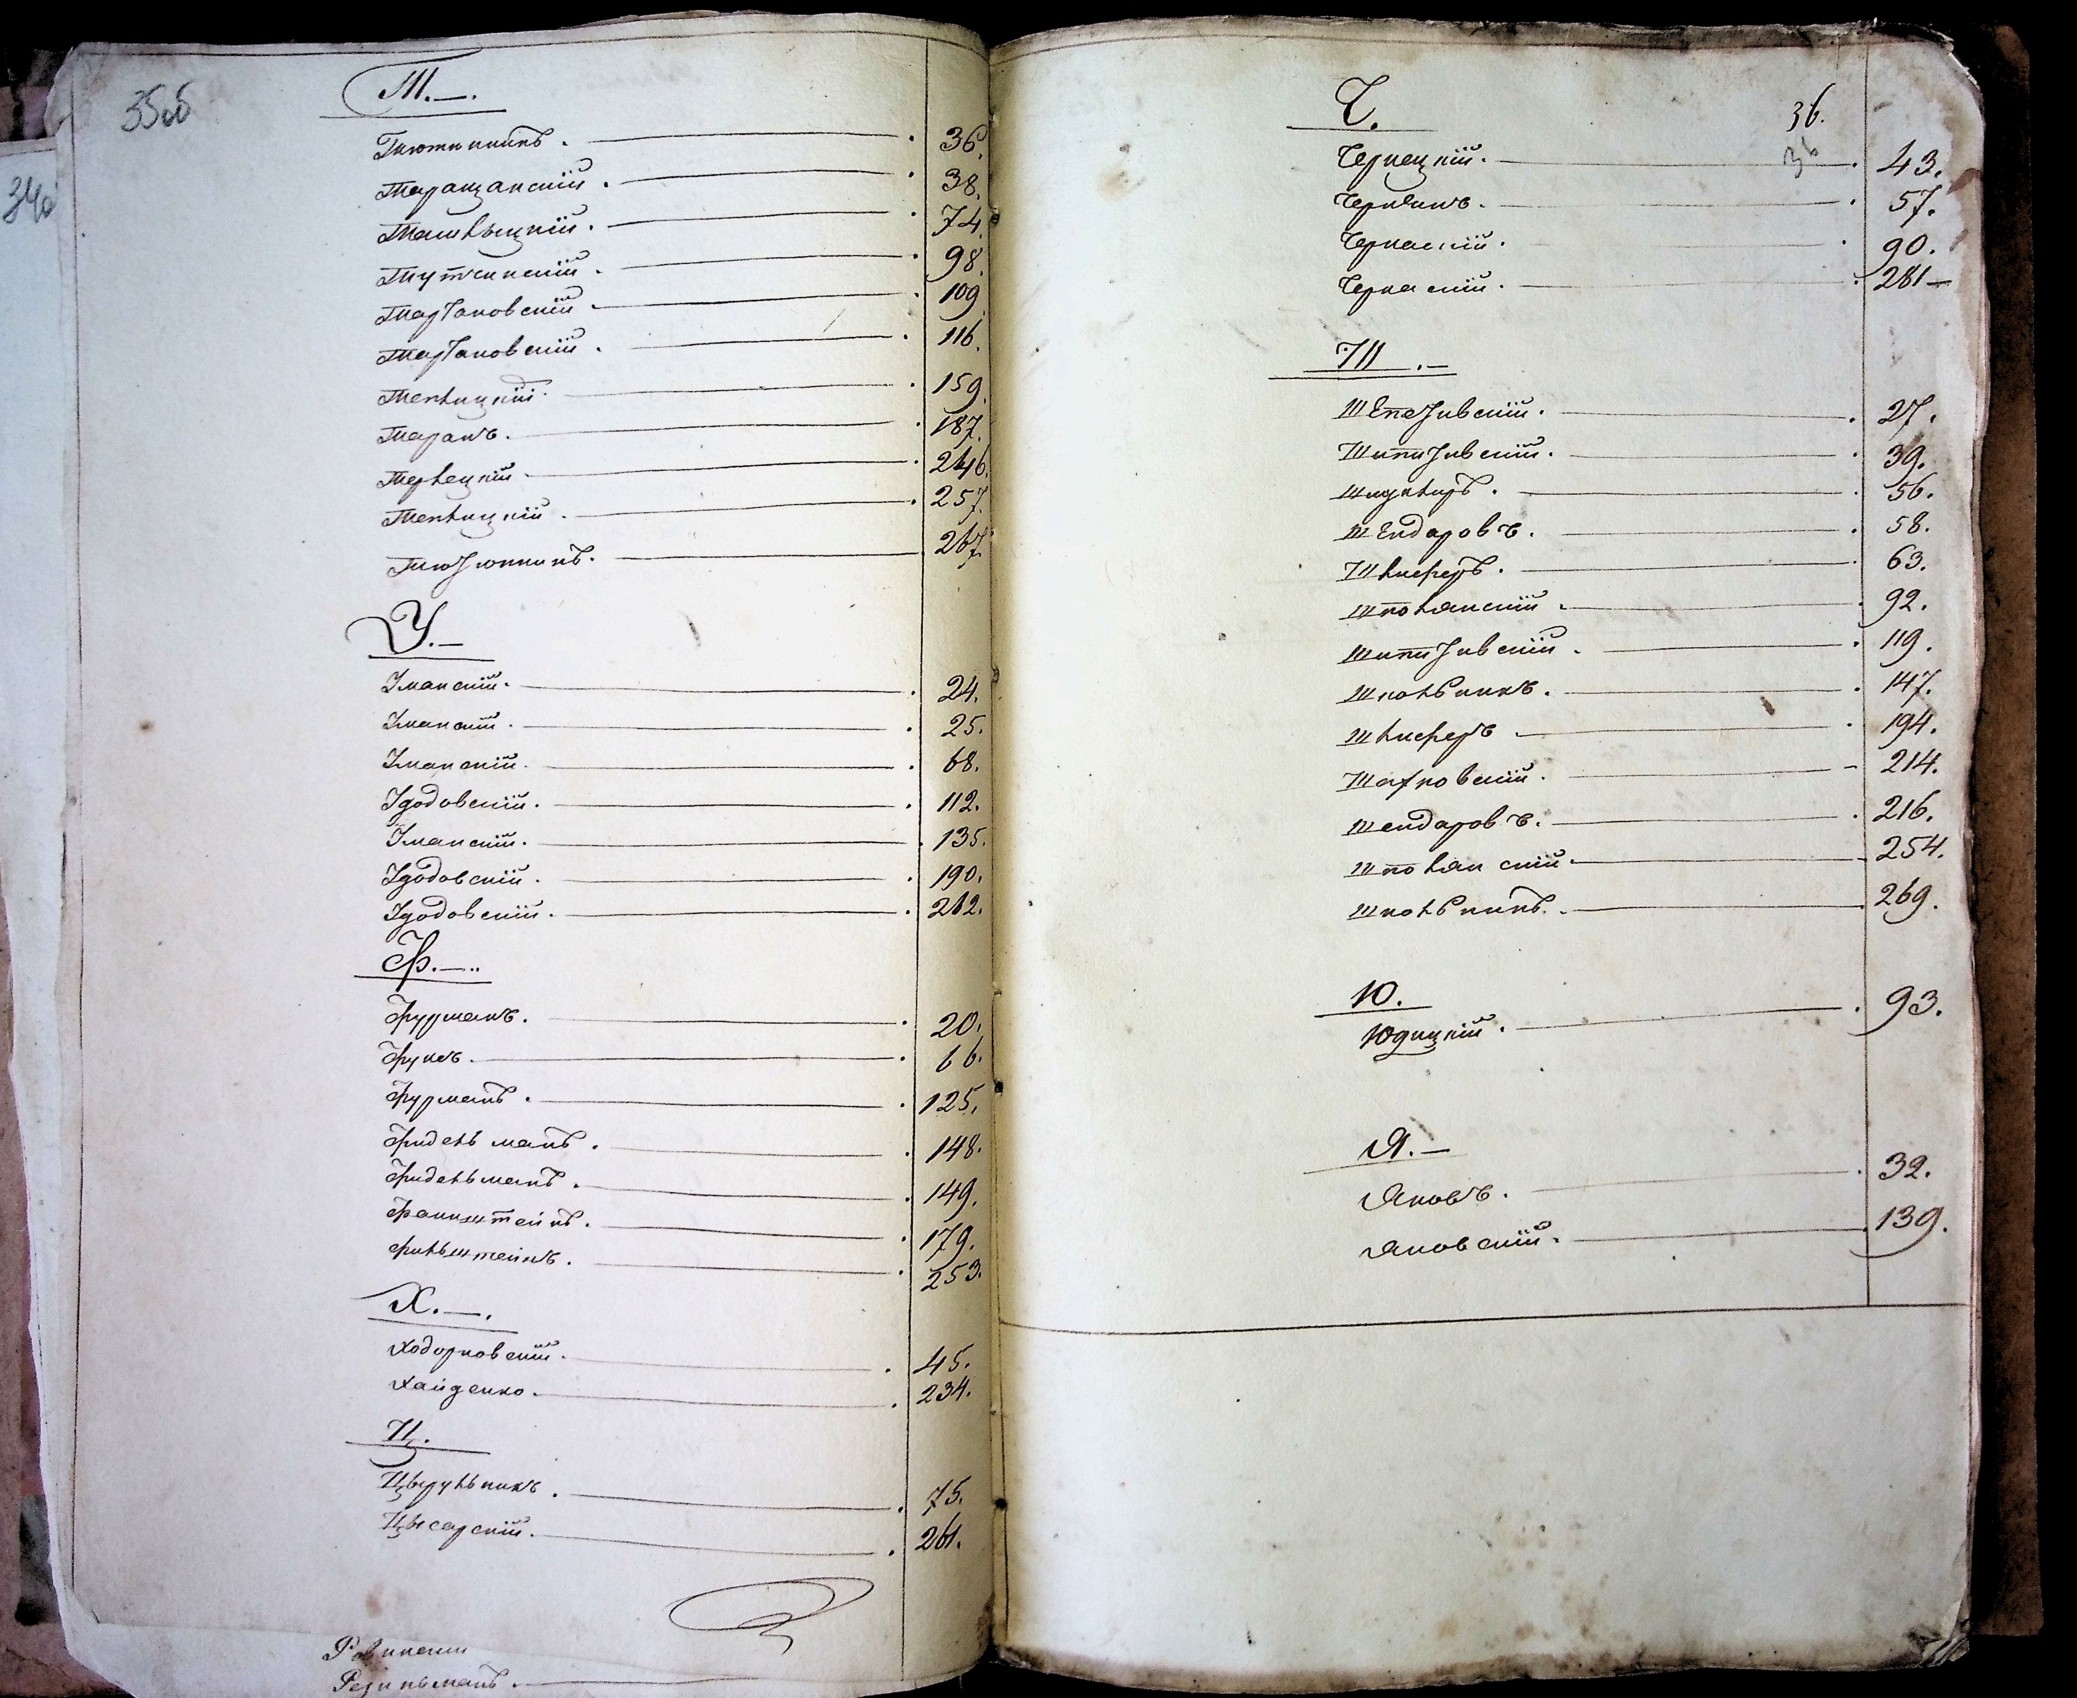 35об
Т.
Тютюнникъ. 36.
Таращанскій. 38.
Таливѣцкій. 74.
Тутчинскій. 98.
Тартаковскій 109
Тартаковскій. 116.
Теплицкій. 159.
Таранъ. 187.
Терлецкій. 246.
Теплицкій. 257.
Тютюнникъ. 267.
У.
Уманскій. 24.
Уманскій. 25.
Уманскій. 68.
Удодовскій. 112.
Уманскій. 135.
Удодовскій. 190.
Удодовскій. 262.
Ф.
Фурманъ. 20.
Фуксъ. 66.
Фурманъ. 125.
Фидельманъ. 148.
Фидельманъ. 149.
Факнштейнъ. 179.
Финьштейнъ. 253.
Х.
Ходорковскій. 45.
Хайденко. 234.
Ц.
Цырульникъ. 75.
Цысарскій. 261.
Равинскій
Резникманъ.
34об
Ч. 36.
36
Чернецкій. 43.
Чернинъ. 57.
Черкаскій. 90.
Черкаскій. 281
Ш.
Шепетивскій. 27.
Шипитивскій. 39.
56.
Шендаровъ. 58.
Шлиферъ. 63.
Шполянскій. 92.
Шипитивскій. 119.
Школьникъ. 147.
Шлиферъ 194.
Шаховскій. 214.
Шендаровъ. 216.
Шполянскій. 254.
Школьникъ. 269.
Ю.
Юдицкій. 93.
Я.
Яковъ. 32.
Яновскій. 139.